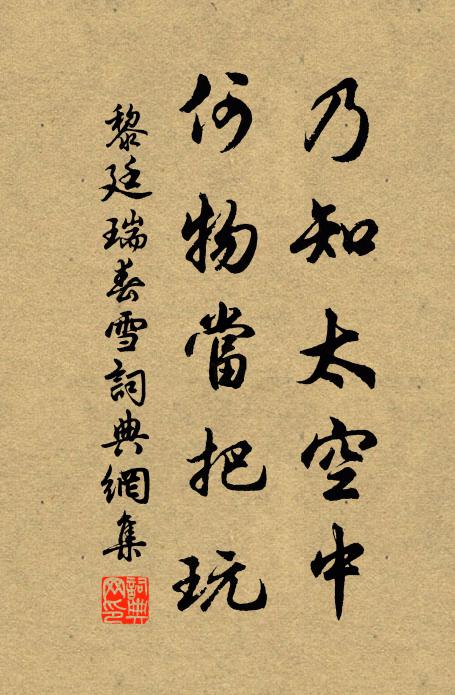 乃知太空中
何物當把玩
黎廷瑞春雪詞典網集
詞典
网印